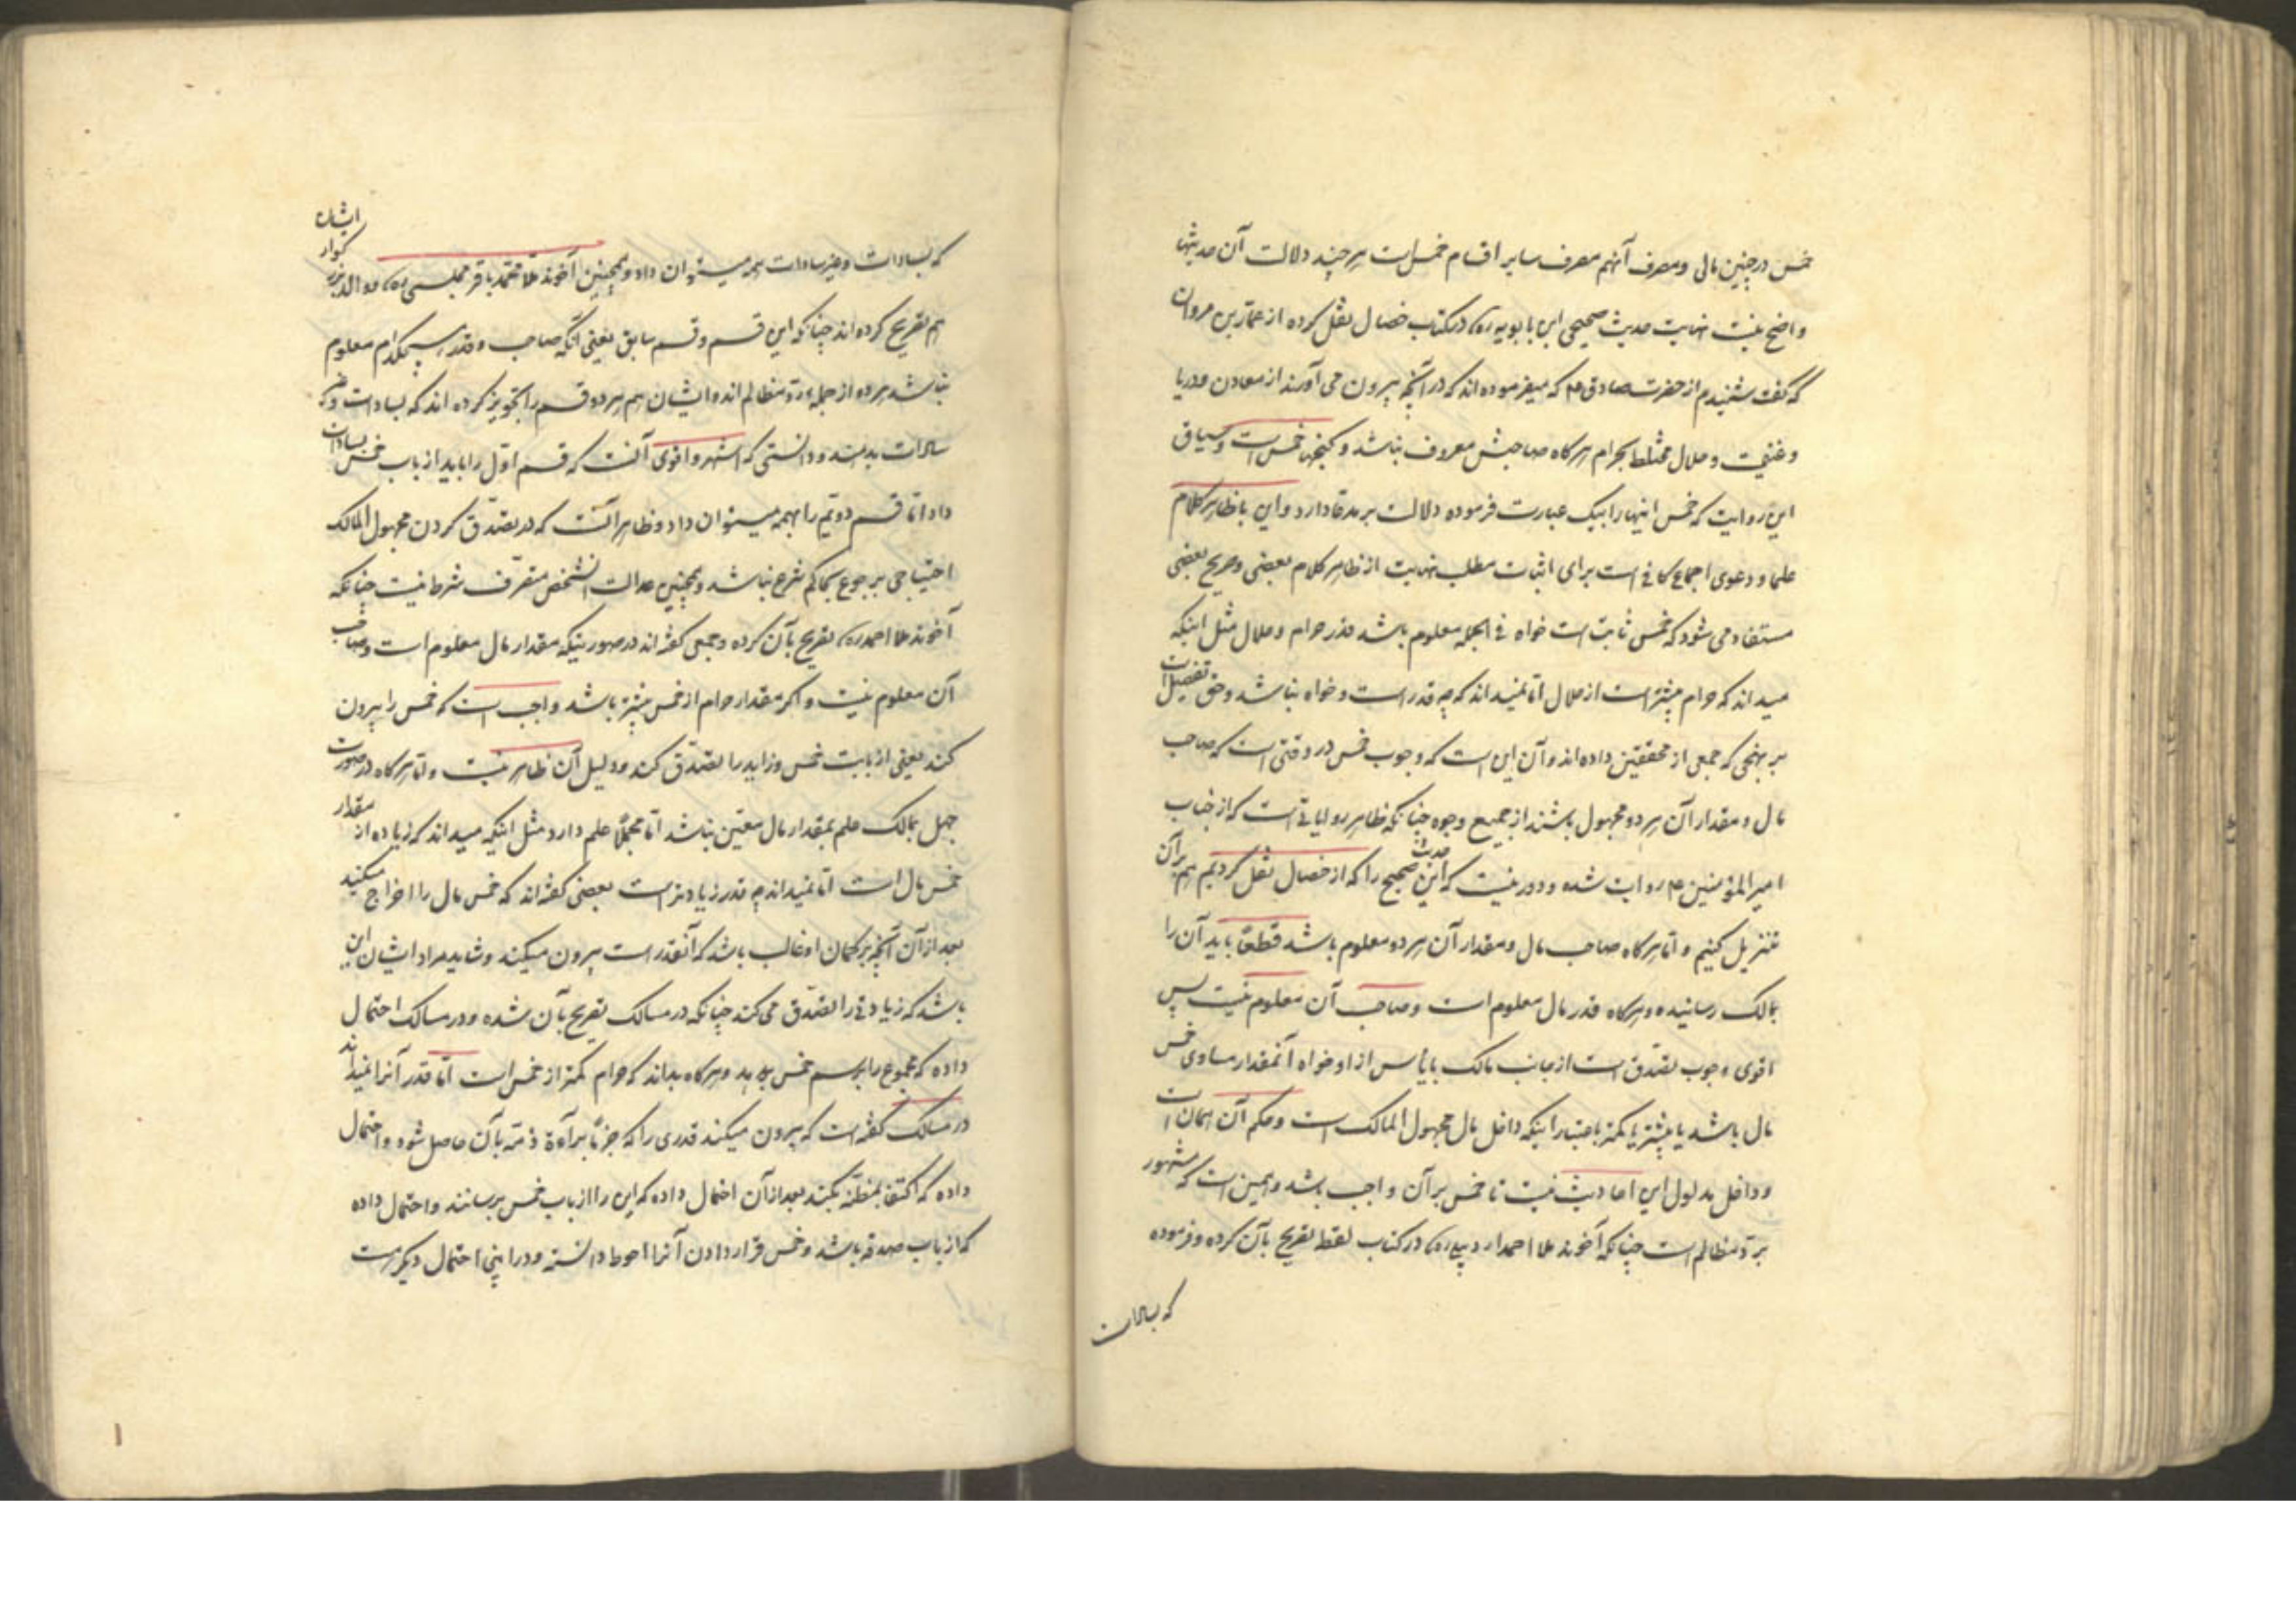 خمس در چنین مالی و مصرف آنهم مصرف سایر اقسام خمس است هر چند دلالت آن حدیثها
واضح نیست نهایت حدیث صحیحی ابن بابویه ره در کتاب خصال نقل کرده از عمار بن مروان
که گفت شنیدم از حضرت صادق ع که میفرموده اند که در آنچه بیرون می آورند از معادن و دریا
و غنیمت و حلال مختلط بحرام هر گاه صاحبش معروف نباشد و کنجها خمس است و سیاق
این روایت که خمس اینها را بیک عبارت فرموده دلالت بر مدعا دارد و این با ظاهر کلام
علما و دعوی اجماع کافی است برای اثبات مطلب نهایت از ظاهر کلام بعضی و صریح بعضی
مستفاد می شود که خمس ثابت است خواه فی الجمله معلوم باشد قدر حرام و حلال مثل اینکه
میداند که حرام بیشتر است از حلال اما نمیداند که چه قدر است و خواه نباشد و حق تفصیل است
بر نهجی که جمعی از محققین داده اند و آن این است که وجوب خمس در وقتی است که صاحب
مال و مقدار آن هر دو مجهول باشند از جمیع وجوه چنانکه ظاهر روایاتی است که از جناب
امیر المؤمنین ع روایت شده و دور نیست که این حدیث صحیح را که از خصال نقل کردیم هم بر آن
تنزیل کنیم و اما هر گاه صاحب مال و مقدار آن هر دو معلوم باشد قطعا باید آن را
بمالک رسانیده و هر گاه قدر مال معلوم است و صاحب آن معلوم نیست پس
اقوی وجوب تصدق است از جانب مالک با یأس از او خواه آنمقدار مساوی خمس
مال باشد یا بیشتر یا کمتر باعتبار اینکه داخل مال مجهول المالک است و حکم آن همان است
و داخل مدلول این احادیث نیست تا خمس بر آن واجب باشد و همین است که مشهور
برد مظالم است چنانکه آخوند ملا احمد اردبیلی ره در کتاب لقطه تصریح بآن کرده و فرموده
که بسادات
که بسادات و غیر سادات همه میتوان داد و همچنین آخوند ملا محمد باقر مجلسی ره و والد بزرگوار ایشان
هم تصریح کرده اند چنانکه این قسم و قسم سابق یعنی آنکه صاحب و قدر هیچکدام معلوم
نباشد هر دو از جمله رد مظالم اند و ایشان هم هر دو قسم را تجویز کرده اند که بسادات و غیر
سادات بدهند و دانستی که اشهر و اقوی آنست که قسم اول را باید از باب خمس بسادات
داد اما قسم دویم را بهمه میتوان داد و ظاهر آنست که در تصدق کردن مجهول المالک
احتیاجی برجوع بحاکم شرع نباشد و همچنین عدالت آنشخص متصرف شرط نیست چنانکه
آخوند ملا احمد ره تصریح بآن کرده و جمعی گفته اند در صورتیکه مقدار مال معلوم است و صاحب
آن معلوم نیست و اگر مقدار حرام از خمس بیشتر باشد واجب است که خمس را بیرون
کند یعنی از بابت خمس و زاید را تصدق کند و دلیل آن ظاهر نیست و اما هر گاه در صورت
جهل بمالک علم بمقدار مال معین نباشد اما مجملا علم دارد مثل اینکه میداند که زیاده از مقدار
خمس مال است اما نمیداند چه قدر زیادتر است بعضی گفته اند که خمس مال را اخراج میکنید
بعد از آن آنچه بر گمان او غالب باشد که آنقدر است بیرون میکند و شاید مراد ایشان این
باشد که زیادتی را تصدق می کند چنانکه در مسالک تصریح بآن شده و در مسالک احتمال
داده که مجموع را برسم خمس بدهد و هر گاه بداند که حرام کمتر از خمس است اما قدر آنرا نمیداند
در مسالک گفته است که بیرون میکند قدری را که جزما براءة ذمه بآن حاصل شود و احتمال
داده که اکتفا بمظنه بکند بعد از آن احتمال داده که این را از باب خمس برسانند و احتمال داده
که از باب صدقه باشد و خمس قرار دادن آنرا احوط دانسته و در اینجا احتمال دیگر هست